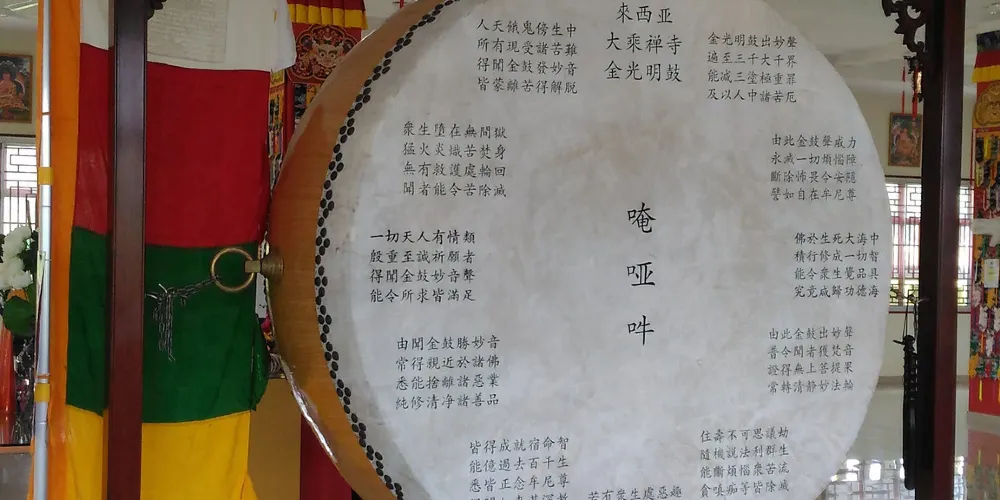 來西亚
大乘禅寺
金光明鼓
金光明鼓出妙聲
遍至三千大千界
能滅三塗極重罪
及以人中諸苦厄
由此金鼓聲威力
永滅一切煩惱障
斷除怖畏令安隱
譬如自在牟尼尊
佛於生死大海中
積行修成一切智
能令衆生覺品具
究竟咸歸功德海
由此金鼓出妙聲
普令聞者獲梵音
證得無上菩提果
常轉清静妙法輪
住壽不可思議劫
隨機說法利群生
能斷煩惱衆苦流
貪嗔痴等皆除滅
若有衆生處惡趣
皆得成就宿命智
能億過去百千生
悉皆正念牟尼尊
由聞金鼓勝妙音
常得親近於諸佛
悉能捨離諸惡業
純修清净諸善品
一切天人有情類
殷重至誠祈願者
得聞金鼓妙音聲
能令所求皆滿足
衆生墮在無間獄
猛火炎熾苦焚身
無有救護處輪回
聞者能令苦除滅
人天餓鬼傍生中
所有現受諸苦難
得聞金鼓發妙音
皆蒙離苦得解脱
唵
哑
吽